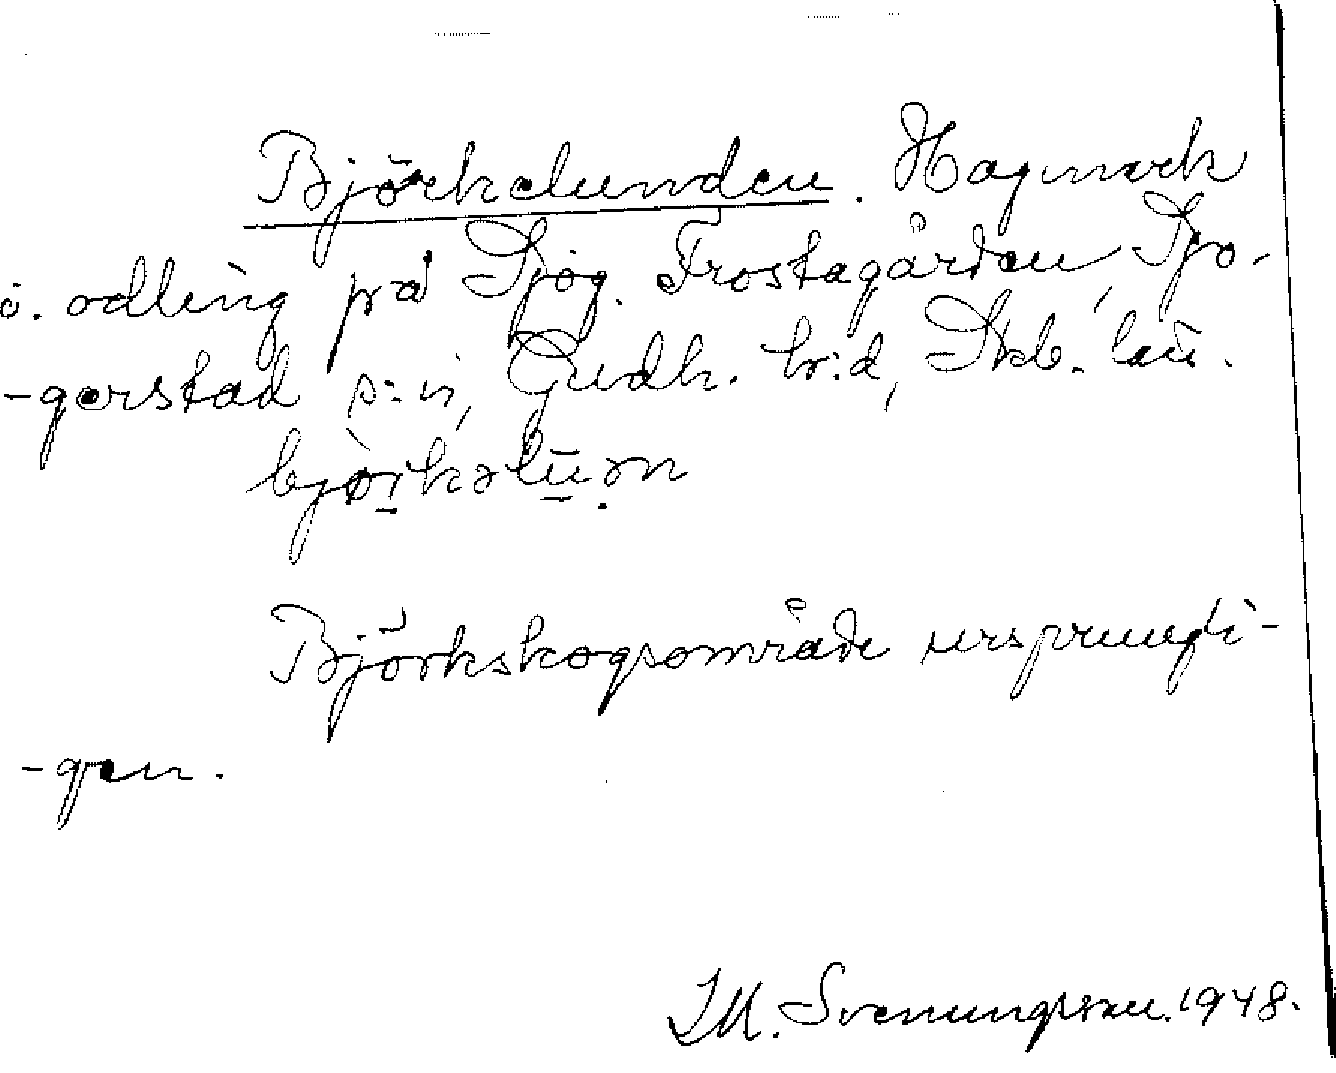 Björkelunden. Hagmark
o. odling på Sjög. Frostagården, Sjo-
-gerstad s:n, Gudh. hr:d, Skb. län.
Björkskogsområde ursprungli-
-gen.
I.M. Svenungsson. 1948.